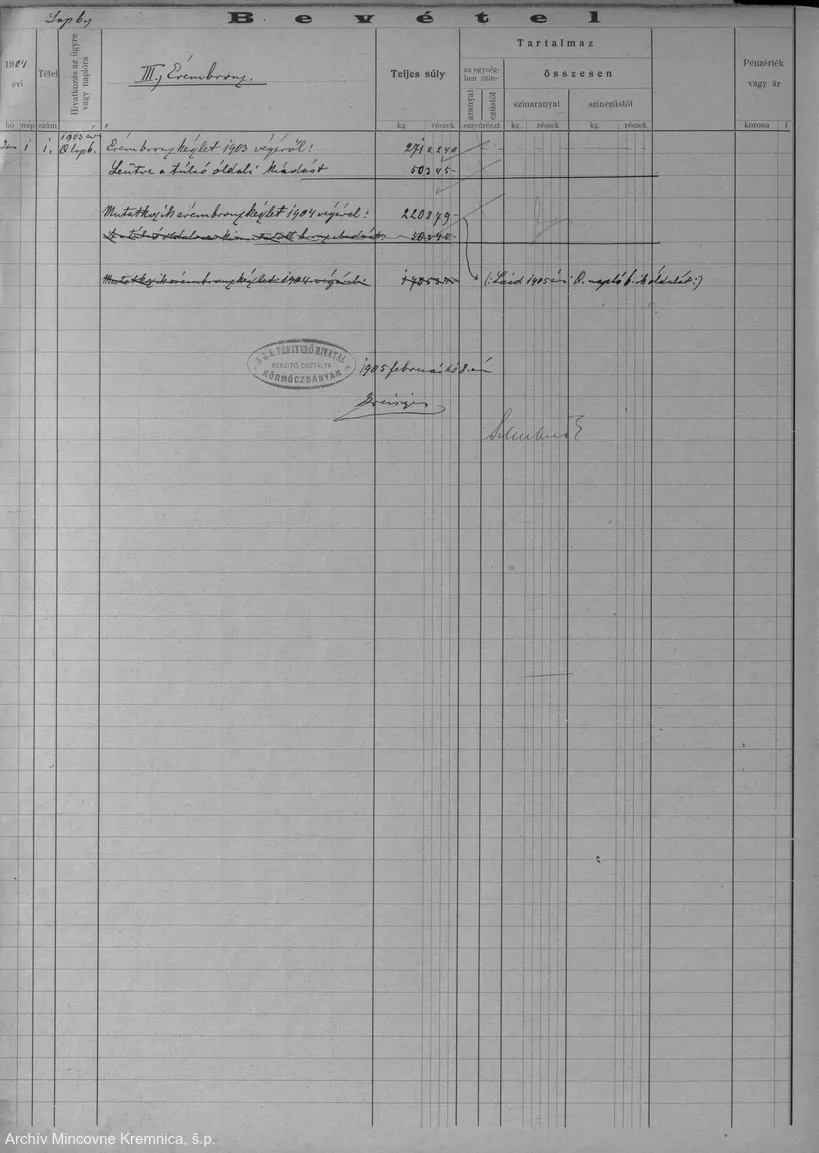 Lap 6.
Bevétel
1904
évi
Tétel
szám
Hivatkozás az ügyre
vagy naplóra
III., Érembronz.
Teljes súly
Tartalmaz
az egység-
ben szin-
aranyat
ezüstöt
összesen
szinaranyat
szinezüstöt
Pénzérték
vagy ár
hó nap
kg. részek ezredrészt kg. részek kg. részek korona f
Jan 1 1. 1903 évi O lap 6. Érembronzkészlet 1903 végéről: 271 2240
Leütve a túlsó oldali kiadást 50345
Mutatkozik érembronzkészlet 1904 végével: 220879
50345
Mutatkozik érembronzkészlet 1904 végével: 170534 (: Lásd 1905 évi O. napló 6. ik oldalát :)
M. K. PÉNZVERŐ HIVATAL
PÉNZITŐ OSZTÁLYA
KÖRMÖCZBÁNYÁN
1905 február hó 8. án
Archív Mincovne Kremnica, š.p.